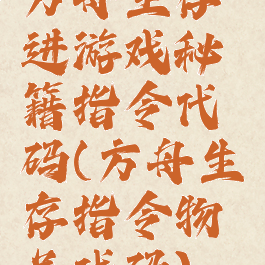 方舟生存
进游戏秘
籍指令代
码(方舟生
存指令物